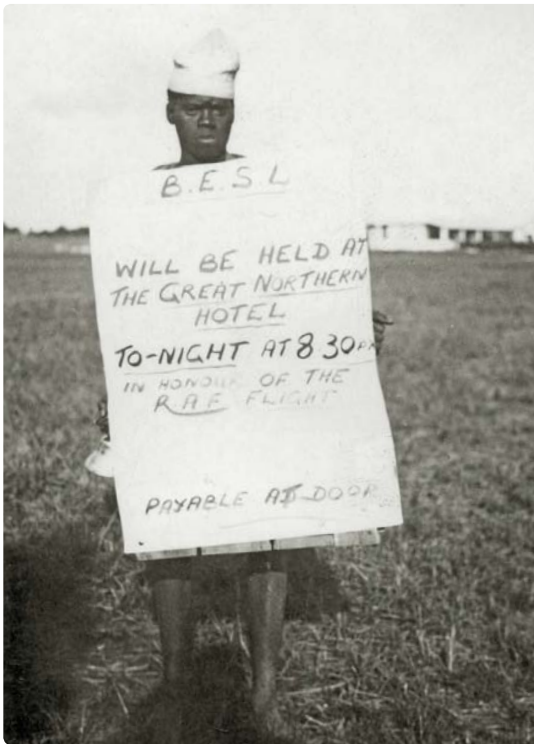 B.E.S.L
WILL BE HELD AT
THE GREAT NORTHERN
HOTEL
TO-NIGHT AT 8 30 PM
IN HONOUR OF THE
R.A.F. FLIGHT
PAYABLE AT DOOR